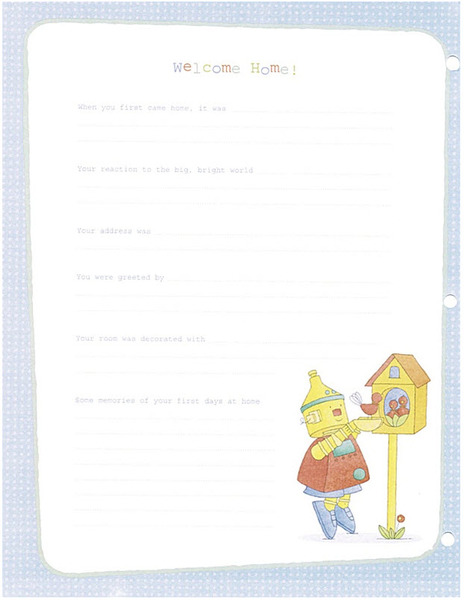 Welcome Home!
When you first came home, it was
Your reaction to the big, bright world
Your address was
You were greeted by
Your room was decorated with
Some memories of your first days at home